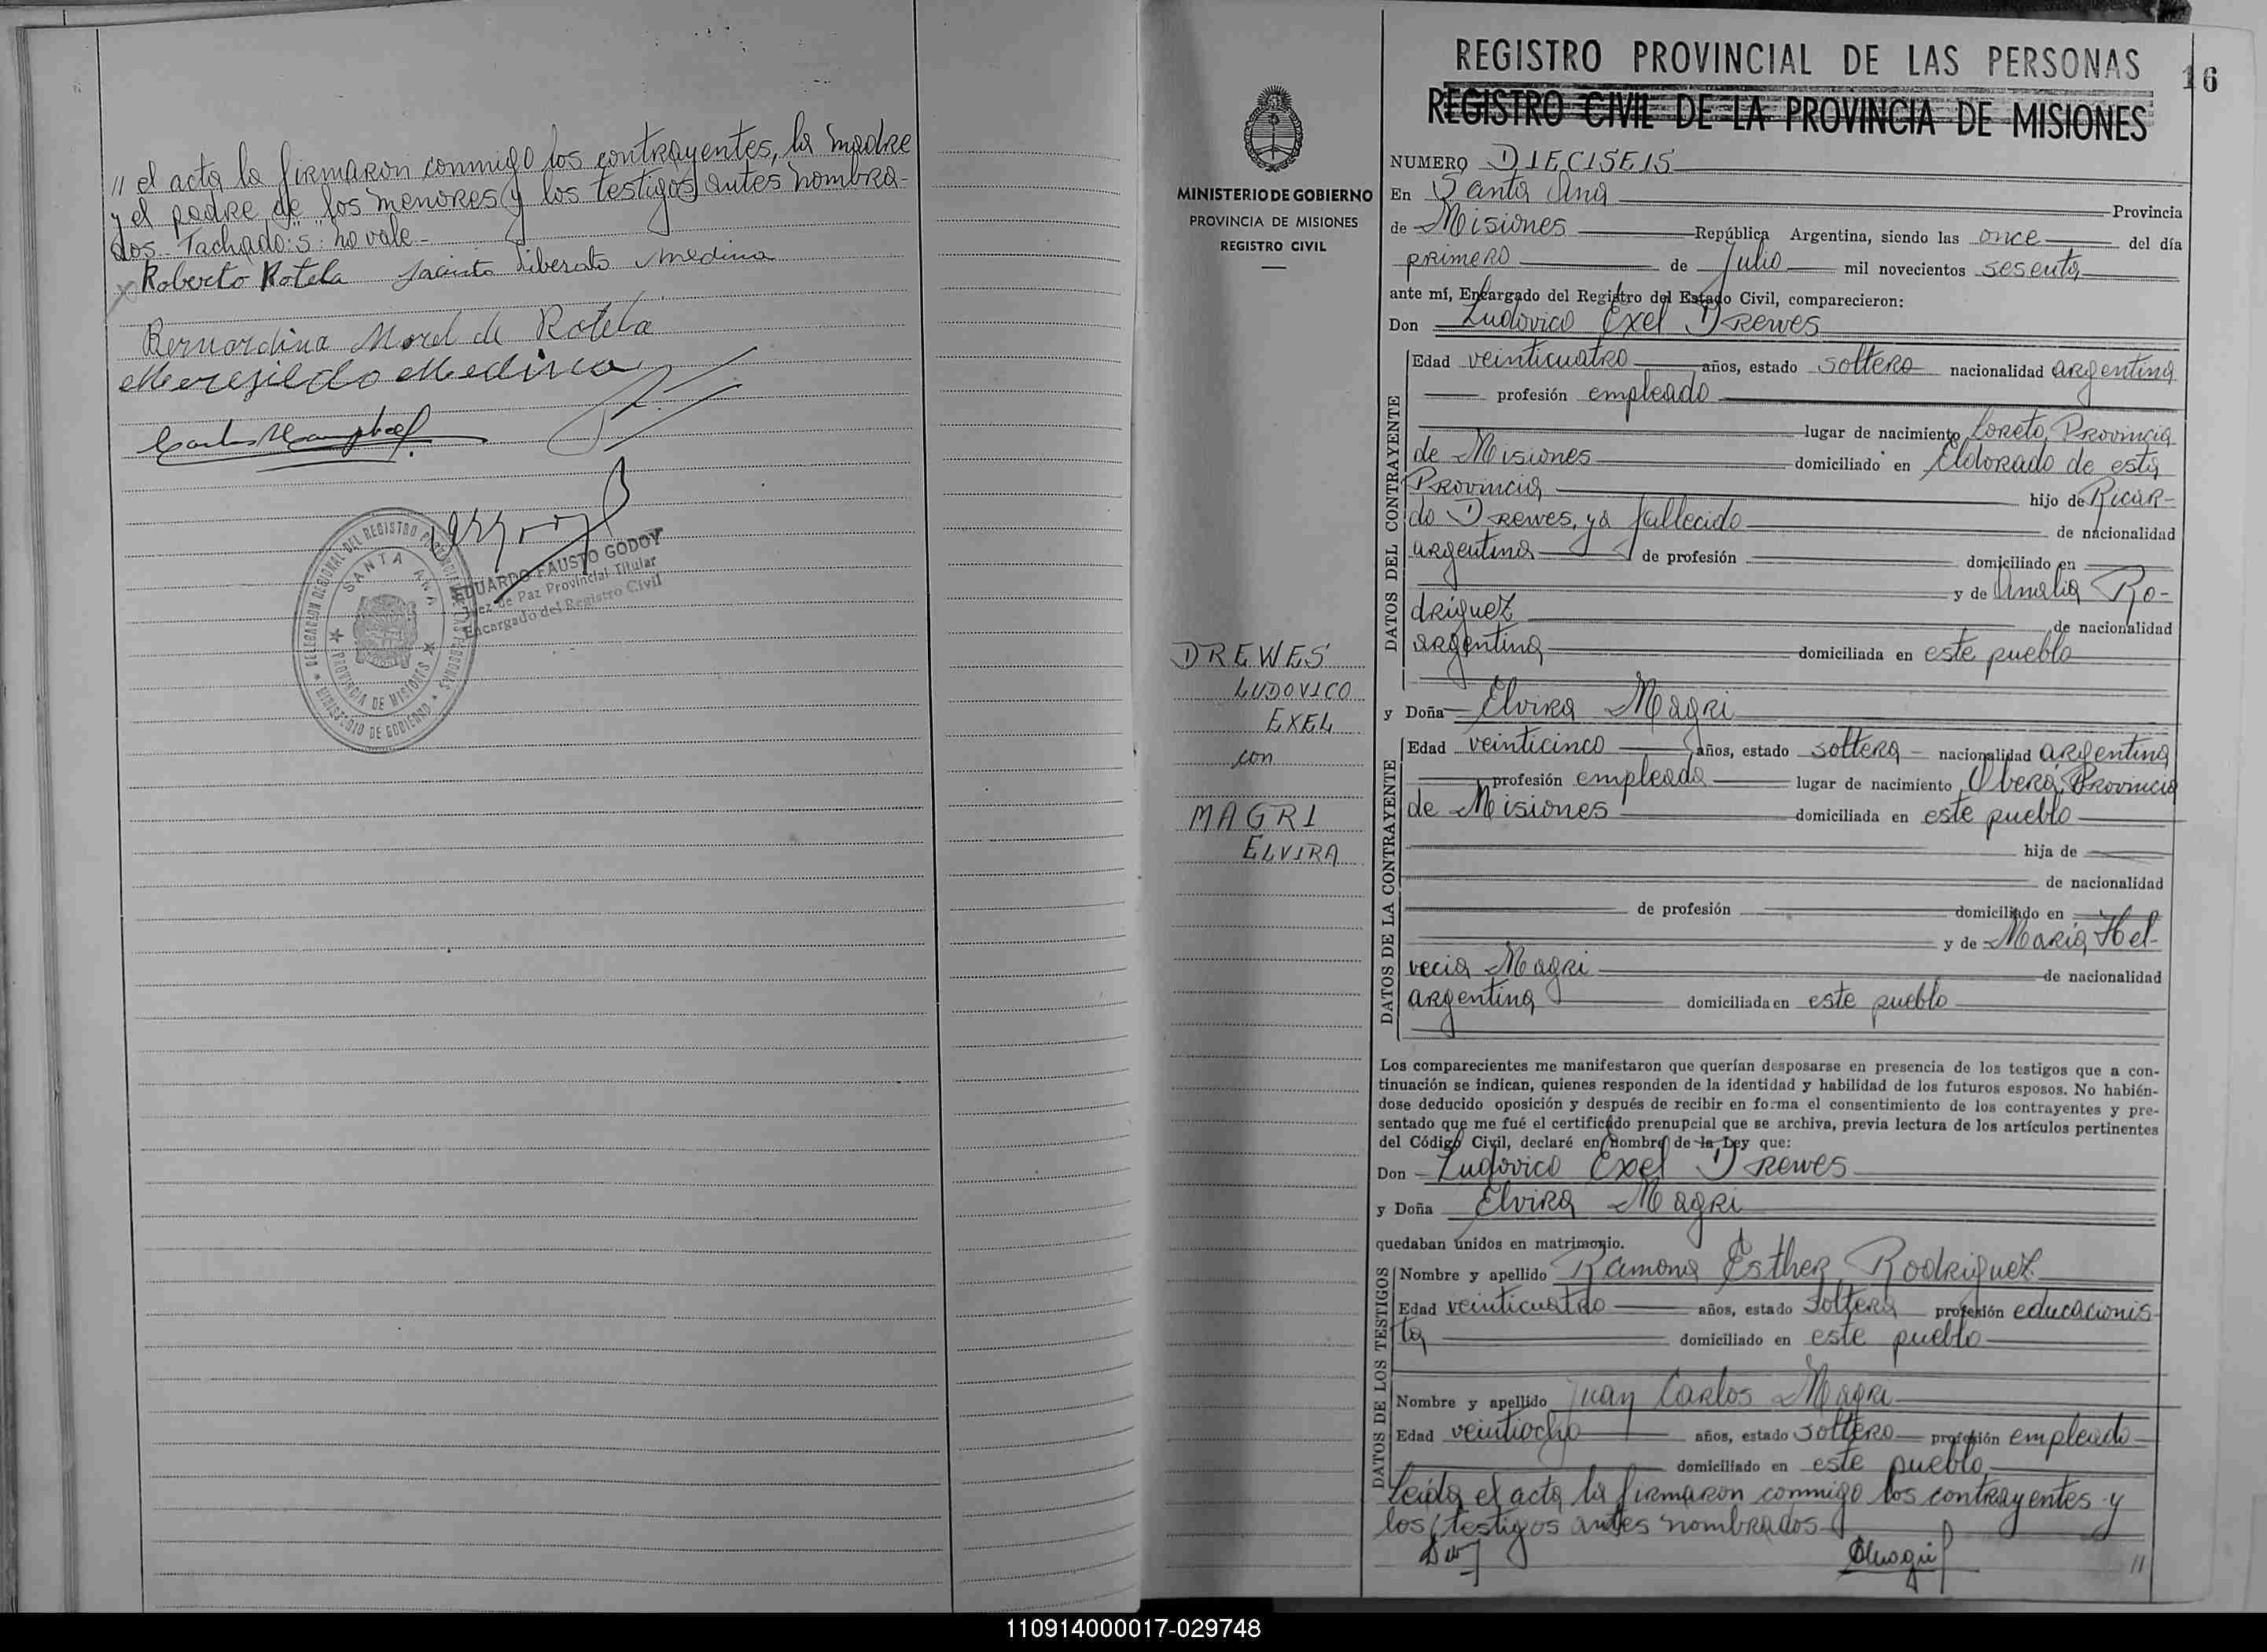 // el acta la firmaron conmigo los contrayentes, la madre
y el padre de los menores y los testigos antes nombra-
dos. Tachado: "s" no vale.-
Roberto Rotela Jacinto Liberato Medina
Bernardina Morel de Rotela
Meregildo Medina
DELEGACION REGIONAL DEL REGISTRO PROVINCIAL DE LAS PERSONAS
SANTA ANA
PROVINCIA DE MISIONES
MINISTERIO DE GOBIERNO
EDUARDO FAUSTO GODOY
Juez de Paz Provincial Titular
Encargado del Registro Civil
MINISTERIO DE GOBIERNO
PROVINCIA DE MISIONES
REGISTRO CIVIL
DREWES
LUDOVICO
EXEL
con
MAGRI
ELVIRA
REGISTRO PROVINCIAL DE LAS PERSONAS
16
REGISTRO CIVIL DE LA PROVINCIA DE MISIONES
NUMERO DIECISEIS
En Santa Ana Provincia
de Misiones República Argentina, siendo las once del día
primero de Julio mil novecientos sesenta
ante mí, Encargado del Registro del Estado Civil, comparecieron:
Don Ludovico Exel Drewes
DATOS DEL CONTRAYENTE
Edad veinticuatro años, estado soltero nacionalidad argentina
profesión empleado
lugar de nacimiento Loreto, Provincia
de Misiones domiciliado en Eldorado de esta
Provincia hijo de Ricar-
do Drewes, ya fallecido de nacionalidad
argentina de profesión domiciliado en
y de Analia Ro-
driguez de nacionalidad
argentina domiciliada en este pueblo
y Doña Elvira Magri
DATOS DE LA CONTRAYENTE
Edad veinticinco años, estado soltera nacionalidad argentina
profesión empleada lugar de nacimiento Oberá, Provincia
de Misiones domiciliada en este pueblo
hija de
de nacionalidad
de profesión domiciliado en
y de María Hel-
vecia Magri de nacionalidad
argentina domiciliada en este pueblo
Los comparecientes me manifestaron que querían desposarse en presencia de los testigos que a con-
tinuación se indican, quienes responden de la identidad y habilidad de los futuros esposos. No habién-
dose deducido oposición y después de recibir en forma el consentimiento de los contrayentes y pre-
sentado que me fué el certificado prenupcial que se archiva, previa lectura de los artículos pertinentes
del Código Civil, declaré en nombre de la Ley que:
Don Ludovico Exel Drewes
y Doña Elvira Magri
quedaban unidos en matrimonio.
DATOS DE LOS TESTIGOS
Nombre y apellido Ramona Esther Rodriguez
Edad veinticuatro años, estado soltera profesión educacionis-
ta domiciliado en este pueblo
Nombre y apellido Juan Carlos Magri
Edad veintiocho años, estado soltero profesión empleado
domiciliado en este pueblo
Leída el acta la firmaron conmigo los contrayentes y
los testigos antes nombrados
EMagri
//
110914000017-029748